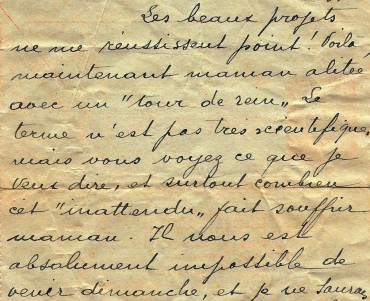 Les beaux projets
ne me réussissent point! Voilà,
maintenant maman alitée
avec un "tour de rein„ Le
terme n'est pas très scientifique,
mais vous voyez ce que je
veux dire, et surtout combien
cet "inattendu„ fait souffrir
maman. Il nous est
absolument impossible de
venir dimanche, et je ne saurais